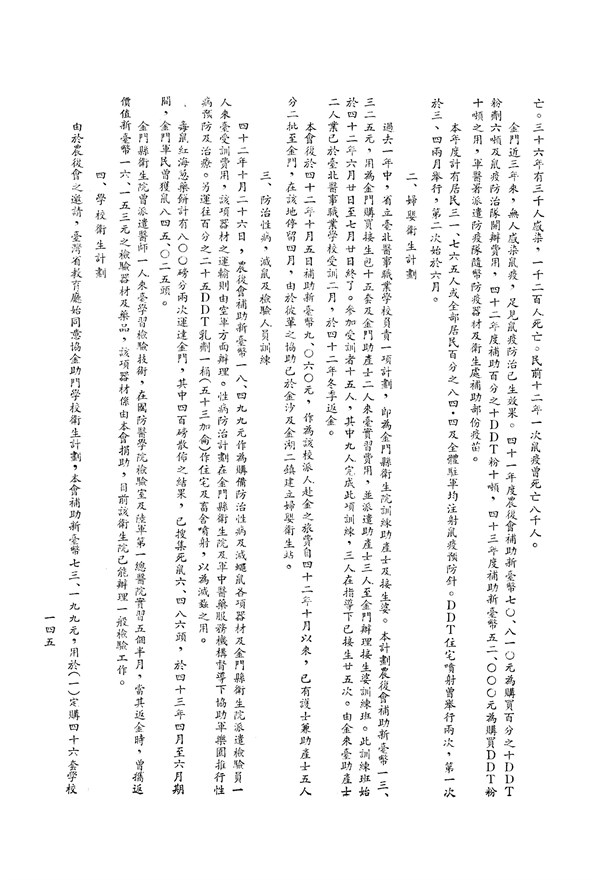 亡。三十六年有三千人感染，一千二百人死亡。民前十二年一次鼠疫曾死亡八千人。
金門近三年來，無人感染鼠疫，足見鼠疫防治已生效果。四十一年度農復會補助新臺幣七〇、八一〇元為購買百分之十ＤＤＴ
粉劑六噸及鼠疫防治隊開辦費用，四十二年度補助百分之十ＤＤＴ粉十噸，四十三年度補助新臺幣五二、〇〇〇元為購買ＤＤＴ粉
十噸之用，軍醫署派遣防疫隊隨帶防疫器材及衛生處補助部份疫苗。
本年度計有居民三一、七六五人或全部居民百分之八四・四及全體駐軍均注射鼠疫預防針。ＤＤＴ住宅噴射曾舉行兩次，第一次
於三、四兩月舉行，第二次始於六月。
二、婦嬰衛生計劃
過去一年中，省立臺北醫事職業學校員責一項計劃，即為金門縣衛生院訓練助產士及接生婆。本計劃農復會補助新臺幣一三、
三二五元，用為金門購買接生包十五套及金門助產士二人來臺實習費用，並派遣助產士三人至金門辦理接生婆訓練班。此訓練班始
於四十二年六月廿日至七月廿日終了。參加受訓者十五人，其中九人完成此項訓練，三人在指導下已接生廿五次。由金來臺助產士
二人業已於臺北醫事職業學校受訓二月，於四十二年冬季返金。
本會復於四十二年十月五日補助新臺幣九、〇六〇元，作為該校派人赴金之旅費自四十二年十月以來，已有護士兼助產士五人
分二批至金門，在該地停留四月，由於彼輩之協助已於金沙及金湖二鎮建立婦嬰衛生站。
三、防治性病，滅鼠及檢驗人員訓練
四十二年十月二十六日，農復會補助新臺幣一八、四九九元作為購備防治性病及滅蠅鼠各項器材及金門縣衛生院派遣檢驗員一
人來臺受訓費用，該項器材之運輸則由空軍方面辦理。性病防治計劃在金門縣衛生院及軍中醫藥服務機構督導下協助軍樂園推行性
病預防及治療。另運往百分之二十五ＤＤＴ乳劑一桶（五十三加侖）作住宅及畜舍噴射，以為滅蝨之用。
毒鼠紅海葱藥餅計有八〇〇磅分兩次運達金門，其中四百磅散佈之結果，已搜集死鼠六、四八六頭，於四十三年四月至六月期
間，金門軍民曾獲鼠八四五、〇二五頭。
金門縣衛生院曾派遣醫師一人來臺學習檢驗技術，在國防醫學院檢驗室及陸軍第一總醫院實習五個半月，當其返金時，曾攜返
價值新臺幣一六、一五三元之檢驗器材及藥品，該項器材係由本會捐助，目前該衛生院已能辦理一般檢驗工作。
四、學校衛生計劃
由於農復會之邀請，臺灣省教育廳始同意協金助門學校衛生計劃，本會補助新臺幣七三、一九九元，用於（一）定購四十六套學校
一四五